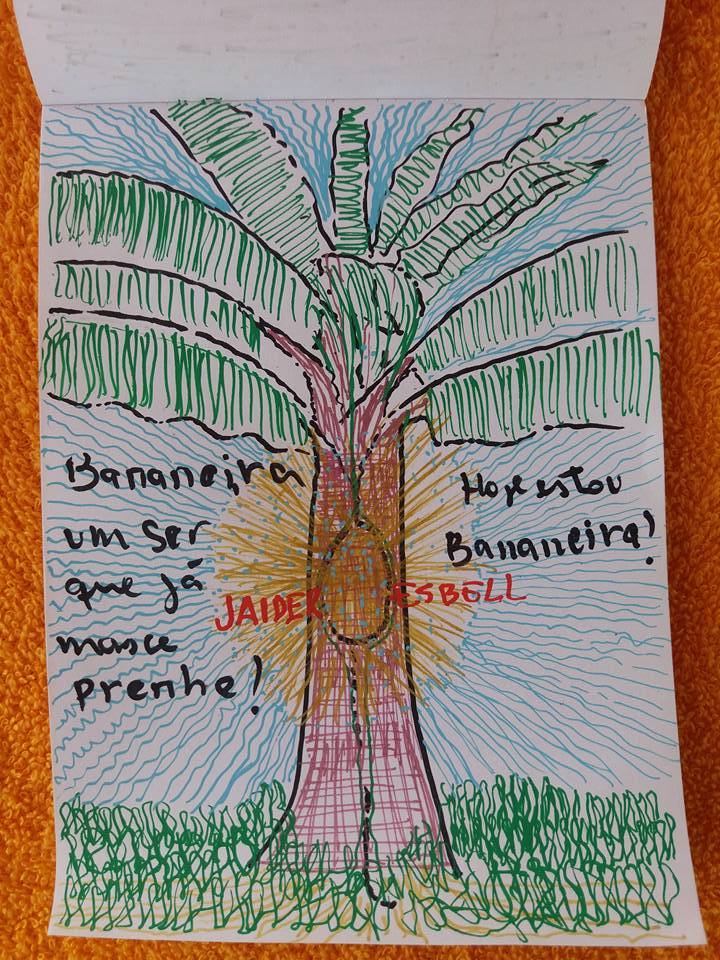 Bananeira
um ser
que já
nasce
prenhe!
Hoje estou
Bananeira!
JAIDER ESBELL